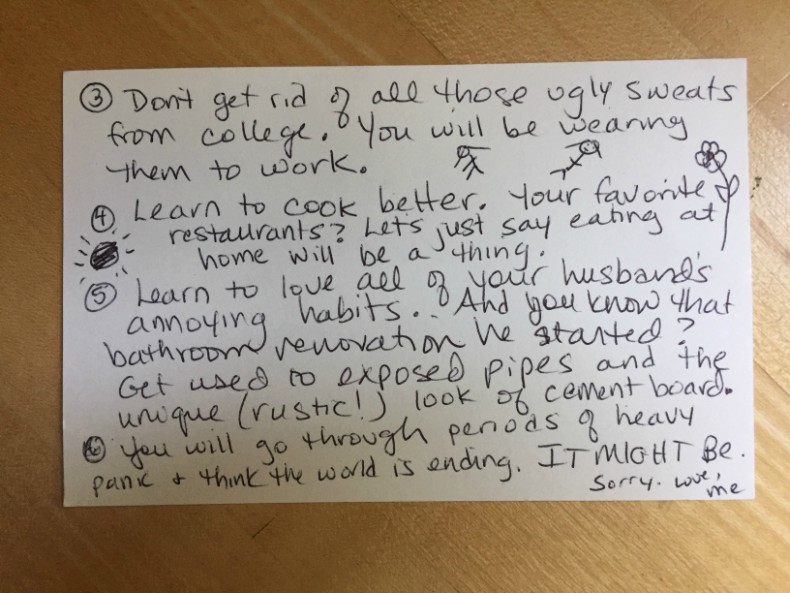 ③ Don't get rid of all those ugly sweats
from college. You will be wearing
them to work.
④ Learn to cook better. Your favorite
restaurants? Let's just say eating at
home will be a thing.
⑤ Learn to love all of your husband's
annoying habits... And you know that
bathroom renovation he started?
Get used to exposed pipes and the
unique (rustic!) look of cement board.
⑥ You will go through periods of heavy
panic + think the world is ending. IT MIGHT BE.
Sorry. Love,
me